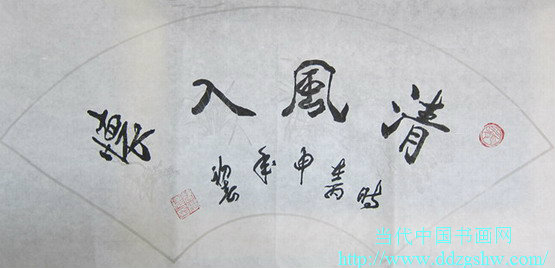 清風入
時在丙申年
当代中国书画网
http://www.ddzgshw.com/